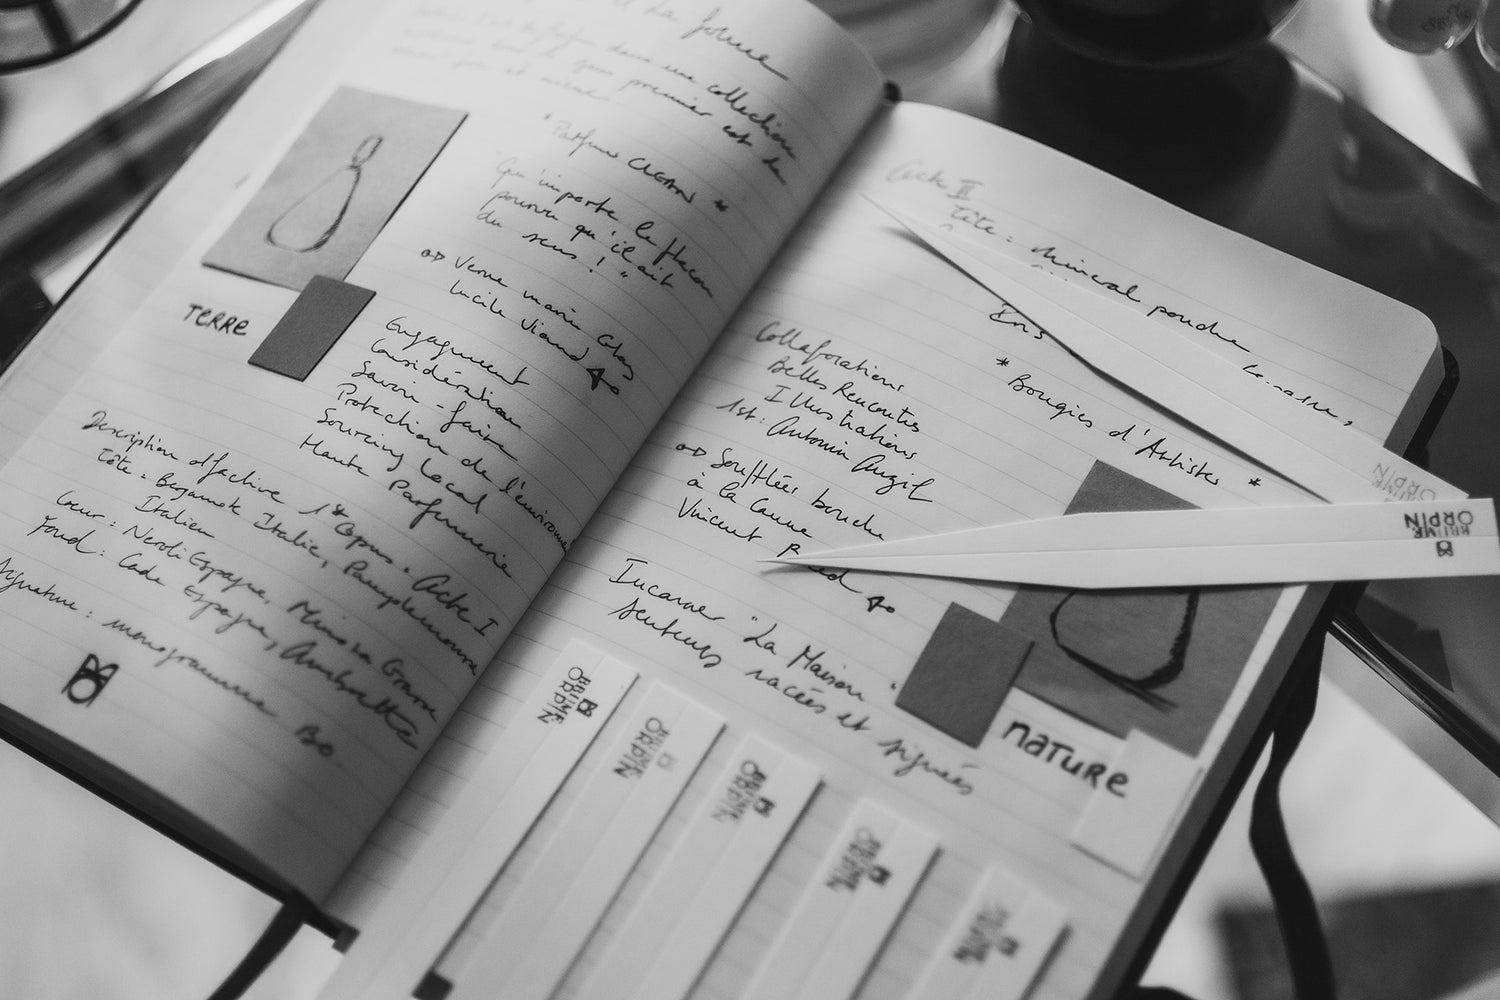 La forme
dans une collection
premier est de
"Parfums CLEAN"
Qu'importe le flacon
pourvu qu'il ait
du sens !"
Verre marin Glaz
Lucile Viaud
TERRE
Engagement
Considération
Savoir-faire
Protection de l'environne
Sourcing Local
Haute Parfumerie
Description olfactive 1er Opus. Acte I
Tête : Bergamote Italie, Pamplemousse
Italien
Cœur : Neroli Espagne,
Fond : Cade Espagne, Ambrette
Signature : monogramme BO
Acte II
Tête : Minéral poudre
* Bougies d'Artistes *
Collaborations
Belles Rencontres
Illustrations
1st : Antonin
Soufflées bouche
à la Canne
Vincent
Incarner "La Maison"
senteurs racées et signées
NATURE
BRUME
ORPIN
BRUME
ORPIN
BRUME
ORPIN
BRUME
ORPIN
BRUME
ORPIN
BRUME
ORPIN
BRUME
ORPIN